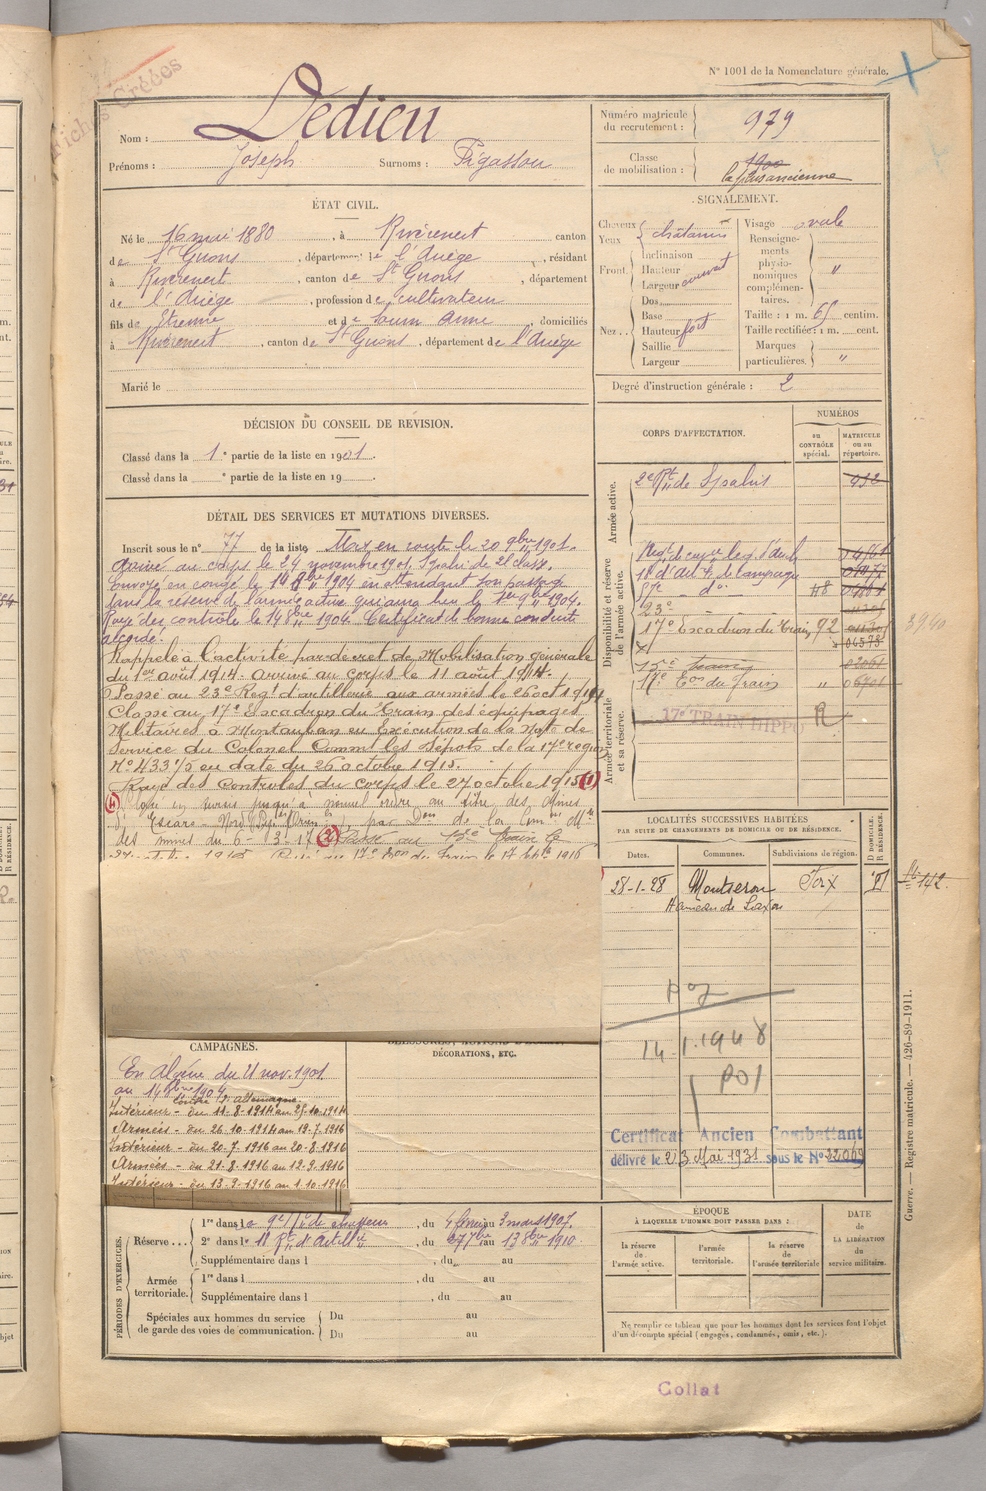 Fiches Créées
N° 1001 de la Nomenclature générale.
Nom : Dedieu
Prénoms : Joseph Surnoms : Pigassou
Numéro matricule du recrutement : 979
Classe de mobilisation : 1900
la plus ancienne
ÉTAT CIVIL.
Né le 16 mai 1880, à Rivèrenert canton
de St Girons, département de l'Ariège, résidant
à Rivèrenert, canton de St Girons, département
de l'Ariège, profession de cultivateur
fils de Etienne et de Soum Anne, domiciliés
à Rivèrenert, canton de St Girons, département de l'Ariège
Marié le
SIGNALEMENT.
Cheveux châtains
Yeux
Front Inclinaison
Hauteur
Largeur
Nez Dos
Base
Hauteur fort
Saillie
Largeur
Visage ovale
Renseignements physionomiques complémentaires. "
Taille : 1 m. 65 centim.
Taille rectifiée : 1 m. cent.
Marques particulières. "
Degré d'instruction générale : 2
DÉCISION DU CONSEIL DE RÉVISION.
Classé dans la 1e partie de la liste en 1901.
Classé dans la e partie de la liste en 19
DÉTAIL DES SERVICES ET MUTATIONS DIVERSES.
Inscrit sous le n° 77 de la liste Mis en route le 20 9bre 1901.
Arrivé au corps le 24 novembre 1901. Spahi de 2e classe.
Envoyé en congé le 14 8bre 1904 en attendant son passage
dans la réserve de l'armée active qui aura lieu le 1er 9bre 1904.
Rayé des contrôles le 14 8bre 1904. Certificat de bonne conduite
accordé.
Rappelé à l'activité par decret de Mobilisation générale
du 1er août 1914. arrivé au corps le 11 août 1914.
Passé au 23e Regt d'artillerie aux armées le 26 oct 1914
Classé au 17e Escadron du Train des équipages
Militaires à Montauban en Exécution de la Note de
Service du Colonel Commt les Dépots de la 17e region
N° 433 1/5 en date du 26 octobre 1915.
Rayé des Controles du corps le 27 octobre 1915 (1)
en sursis jusqu'à nouvel ordre au titre des
par Don de la
des mines du 6-3-17 (2) Passé au 15e Train le
CORPS D'AFFECTATION.
NUMÉROS
au CONTRÔLE spécial.
MATRICULE ou au répertoire.
Armée active.
2e Rt de Spahis 952
Disponibilité et réserve de l'armée active.
18e d'artie de campagne
57e - d° H8
23e
17e Escadron du Train 92
06573
15e Train
17e Eon du Train "
Armée territoriale et sa réserve.
17e TRAIN HIPPO R
LOCALITÉS SUCCESSIVES HABITÉES
PAR SUITE DE CHANGEMENTS DE DOMICILE OU DE RÉSIDENCE.
Dates. Communes. Subdivisions de région. D DOMICILE. R RÉSIDENCE.
28-1-28 Montseron Foix
Hameau de
142.
14.1.1948
Certificat Ancien Combattant
délivré le 23 Mai 1931 sous le N° 32069
CAMPAGNES.
En Algérie du 21 nov. 1901
au 14 8bre 1904
Contre l'Allemagne.
Intérieur - du 11-8-1914 au 25-10-1914
Armées - du 26-10-1914 au 19-7-1916
Intérieur - du 20-7-1916 au 20-8-1916
Armées - du 21-8-1916 au 12-9-1916
Intérieur - du 13-9-1916 au 1-10-1916
DÉCORATIONS, ETC.
PÉRIODES D'EXERCICES.
Réserve 1re dans le 9e Rt de chasseurs, du 4 février au 3 mars 1907.
2e dans le 18 Rt d'Artillie, du 27 7bre au 13 8bre 1910.
Supplémentaire dans l , du au
Armée territoriale. 1re dans l , du au
Supplémentaire dans l , du au
Spéciales aux hommes du service de garde des voies de communication. Du au
Du au
ÉPOQUE
À LAQUELLE L'HOMME DOIT PASSER DANS :
la réserve de l'armée active.
l'armée territoriale.
la réserve de l'armée territoriale
DATE de LA LIBÉRATION du service militaire.
Ne remplir ce tableau que pour les hommes dont les services font l'objet
d'un décompte spécial (engagés, condamnés, omis, etc.).
Guerre. — Registre matricule. — 426-89-1911.
Collat